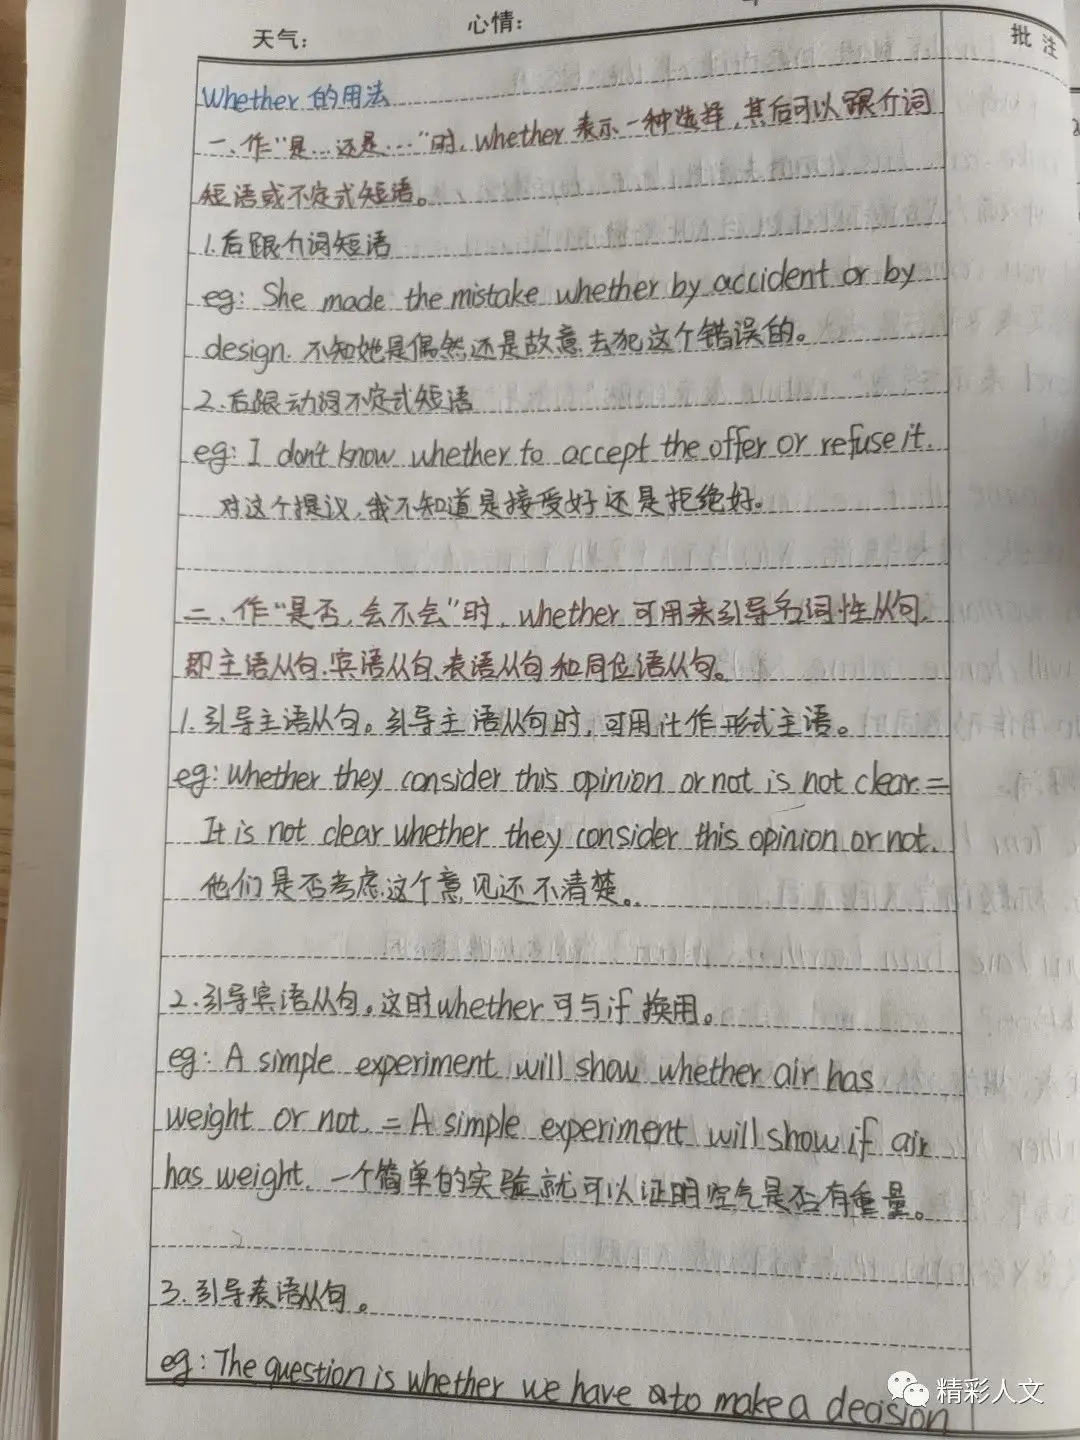 天气:
心情:
批注
Whether 的用法
一、作“是...还是...”时, whether 表示一种选择,其后可以跟介词
短语或不定式短语。
1.后跟介词短语
eg: She made the mistake whether by accident or by
design. 不知她是偶然还是故意去犯这个错误的。
2.后跟动词不定式短语
eg: I don't know whether to accept the offer or refuse it.
对这个提议,我不知道是接受好还是拒绝好。
二、作“是否,会不会”时, whether 可用来引导名词性从句,
即主语从句、宾语从句、表语从句和同位语从句。
1.引导主语从句。引导主语从句时,可用it作形式主语。
eg: Whether they consider this opinion or not is not clear. =
It is not clear whether they consider this opinion or not.
他们是否考虑这个意见还不清楚。
2.引导宾语从句。这时whether可与if换用。
eg: A simple experiment will show whether air has
weight or not. = A simple experiment will show if air
has weight. 一个简单的实验就可以证明空气是否有重量。
3.引导表语从句。
eg: The question is whether we have to make a decision
精彩人文